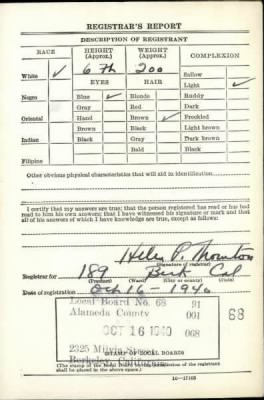 REGISTRAR'S REPORT
DESCRIPTION OF REGISTRANT
RACE HEIGHT (Approx.) WEIGHT (Approx.) COMPLEXION
White ✓ 6 ft 200 Sallow
EYES HAIR Light ✓
Negro Blue ✓ Blonde Ruddy
Gray Red Dark
Oriental Hazel Brown ✓ Freckled
Brown Black Light brown
Indian Black Gray Dark brown
Bald Black
Filipino
Other obvious physical characteristics that will aid in identification
I certify that my answers are true; that the person registered has read or has had
read to him his own answers; that I have witnessed his signature or mark and that
all of his answers of which I have knowledge are true, except as follows:
Helen P. Thornton
(Signature of registrar)
Registrar for 189 Berk Cal
(Precinct) (Ward) (City or county) (State)
Date of registration Oct 16 - 1940
Local Board No. 68 91
Alameda County 001 68
OCT 16 1940 068
2325 Milvia Street
Berkeley, California
STAMP OF LOCAL BOARD
(The stamp of the Local Board having jurisdiction of the registrant
shall be placed in the above space.)